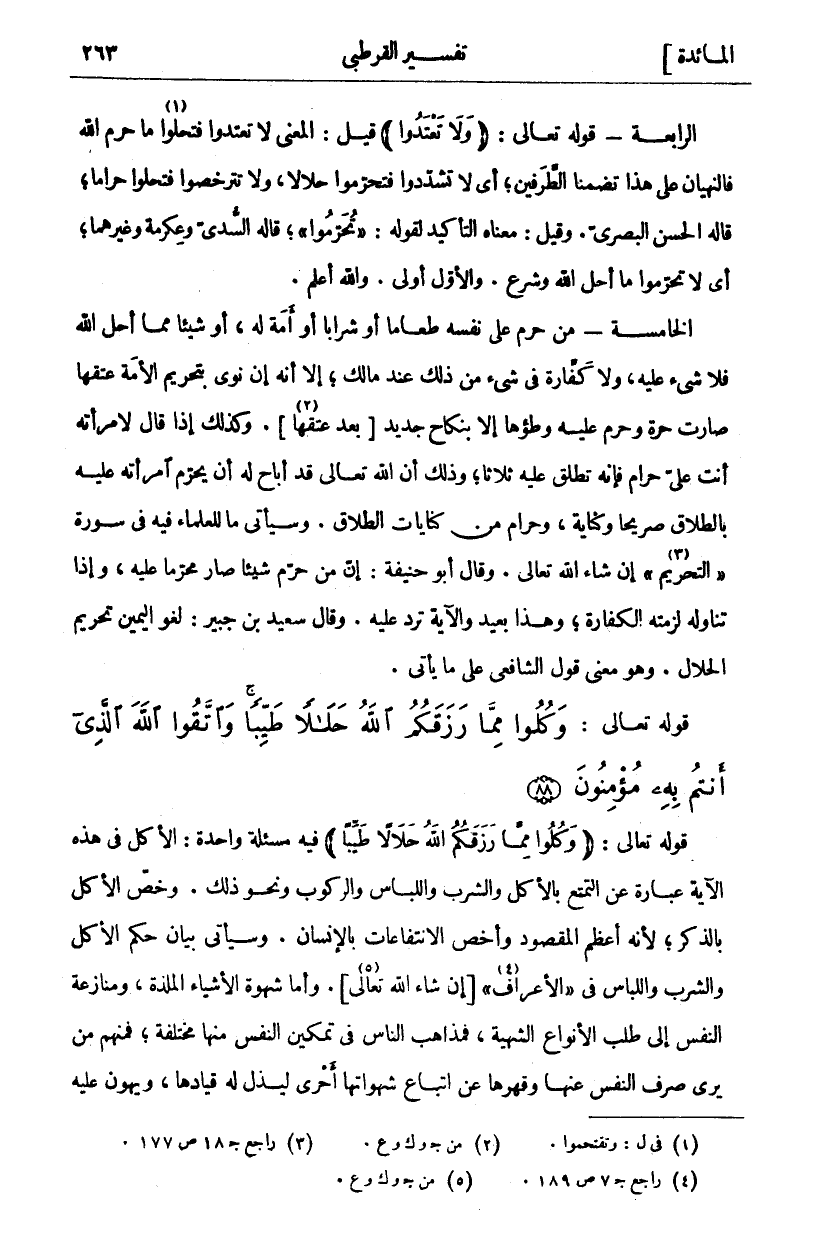 المائدة ] تفسير القرطبى ٢٦٣
الرابعة – قوله تعالى : ﴿ وَلَا تَعْتَدُوا ﴾ قيل : المعنى لا تعتدوا فتحلوا (١) ما حرم الله
فالنهيان على هذا تضمنا الطَّرَفين؛ أى لا تشدّدوا فتحرّموا حلالا، ولا تترخصوا فتحلوا حراما؛
قاله الحسن البصرىّ . وقيل : معناه التأكيد لقوله : «تُحَرِّمُوا»؛ قاله السُّدىّ وعِكرمة وغيرهما؛
أى لا تحرّموا ما أحل الله وشرع . والأوّل أولى . والله أعلم .
الخامسة – من حرم على نفسه طعاما أو شرابا أو أَمَة له ، أو شيئا مما أحل الله
فلا شىء عليه، ولا كَفَّارة فى شىء من ذلك عند مالك ؛ إلا أنه إن نوى بتحريم الأَمَة عتقها
صارت حرة وحرم عليه وطؤها إلا بنكاح جديد [ بعد عتقها (٢) ] . وكذلك إذا قال لامرأته
أنت علىّ حرام فإنه تطلق عليه ثلاثا؛ وذلك أن الله تعالى قد أباح له أن يحرّم آمرأته عليه
بالطلاق صريحا وكناية ، وحرام من كنايات الطلاق . وسيأتى ما للعلماء فيه فى سورة
« التحريم (٣) » إن شاء الله تعالى . وقال أبو حنيفة : إنّ من حرّم شيئا صار محرّما عليه ، وإذا
تناوله لزمته الكفارة ؛ وهذا بعيد والآية ترد عليه . وقال سعيد بن جبير : لغو اليمين تحريم
الحلال . وهو معنى قول الشافعى على ما يأتى .
قوله تعالى : وَكُلُوا مِمَّا رَزَقَكُمُ ٱللَّهُ حَلَـٰلًا طَيِّبًا ۚ وَٱتَّقُوا ٱللَّهَ ٱلَّذِىٓ
أَنتُم بِهِۦ مُؤْمِنُونَ ۝٨٨
قوله تعالى : ﴿ وَكُلُوا مِمَّا رَزَقَكُمُ اللهُ حَلَالًا طَيِّبًا ﴾ فيه مسئلة واحدة : الأكل فى هذه
الآية عبارة عن التمتع بالأكل والشرب واللباس والركوب ونحو ذلك . وخصّ الأكل
بالذكر ؛ لأنه أعظم المقصود وأخص الانتفاعات بالإنسان . وسيأتى بيان حكم الأكل
والشرب واللباس فى «الأعراف (٤)» [إن شاء الله تعالى (٥)] . وأما شهوة الأشياء الملذة ، ومنازعة
النفس إلى طلب الأنواع الشهية ، فمذاهب الناس فى تمكين النفس منها مختلفة ؛ فمنهم من
يرى صرف النفس عنها وقهرها عن اتباع شهواتها أَحْرى ليذل له قيادها ، ويهون عليه
(١) فى ل : وتفتحموا . (٢) من جـ وك وع . (٣) راجع جـ ١٨ ص ١٧٧ .
(٤) راجع جـ ٧ ص ١٨٩ . (٥) من جـ وك وع .